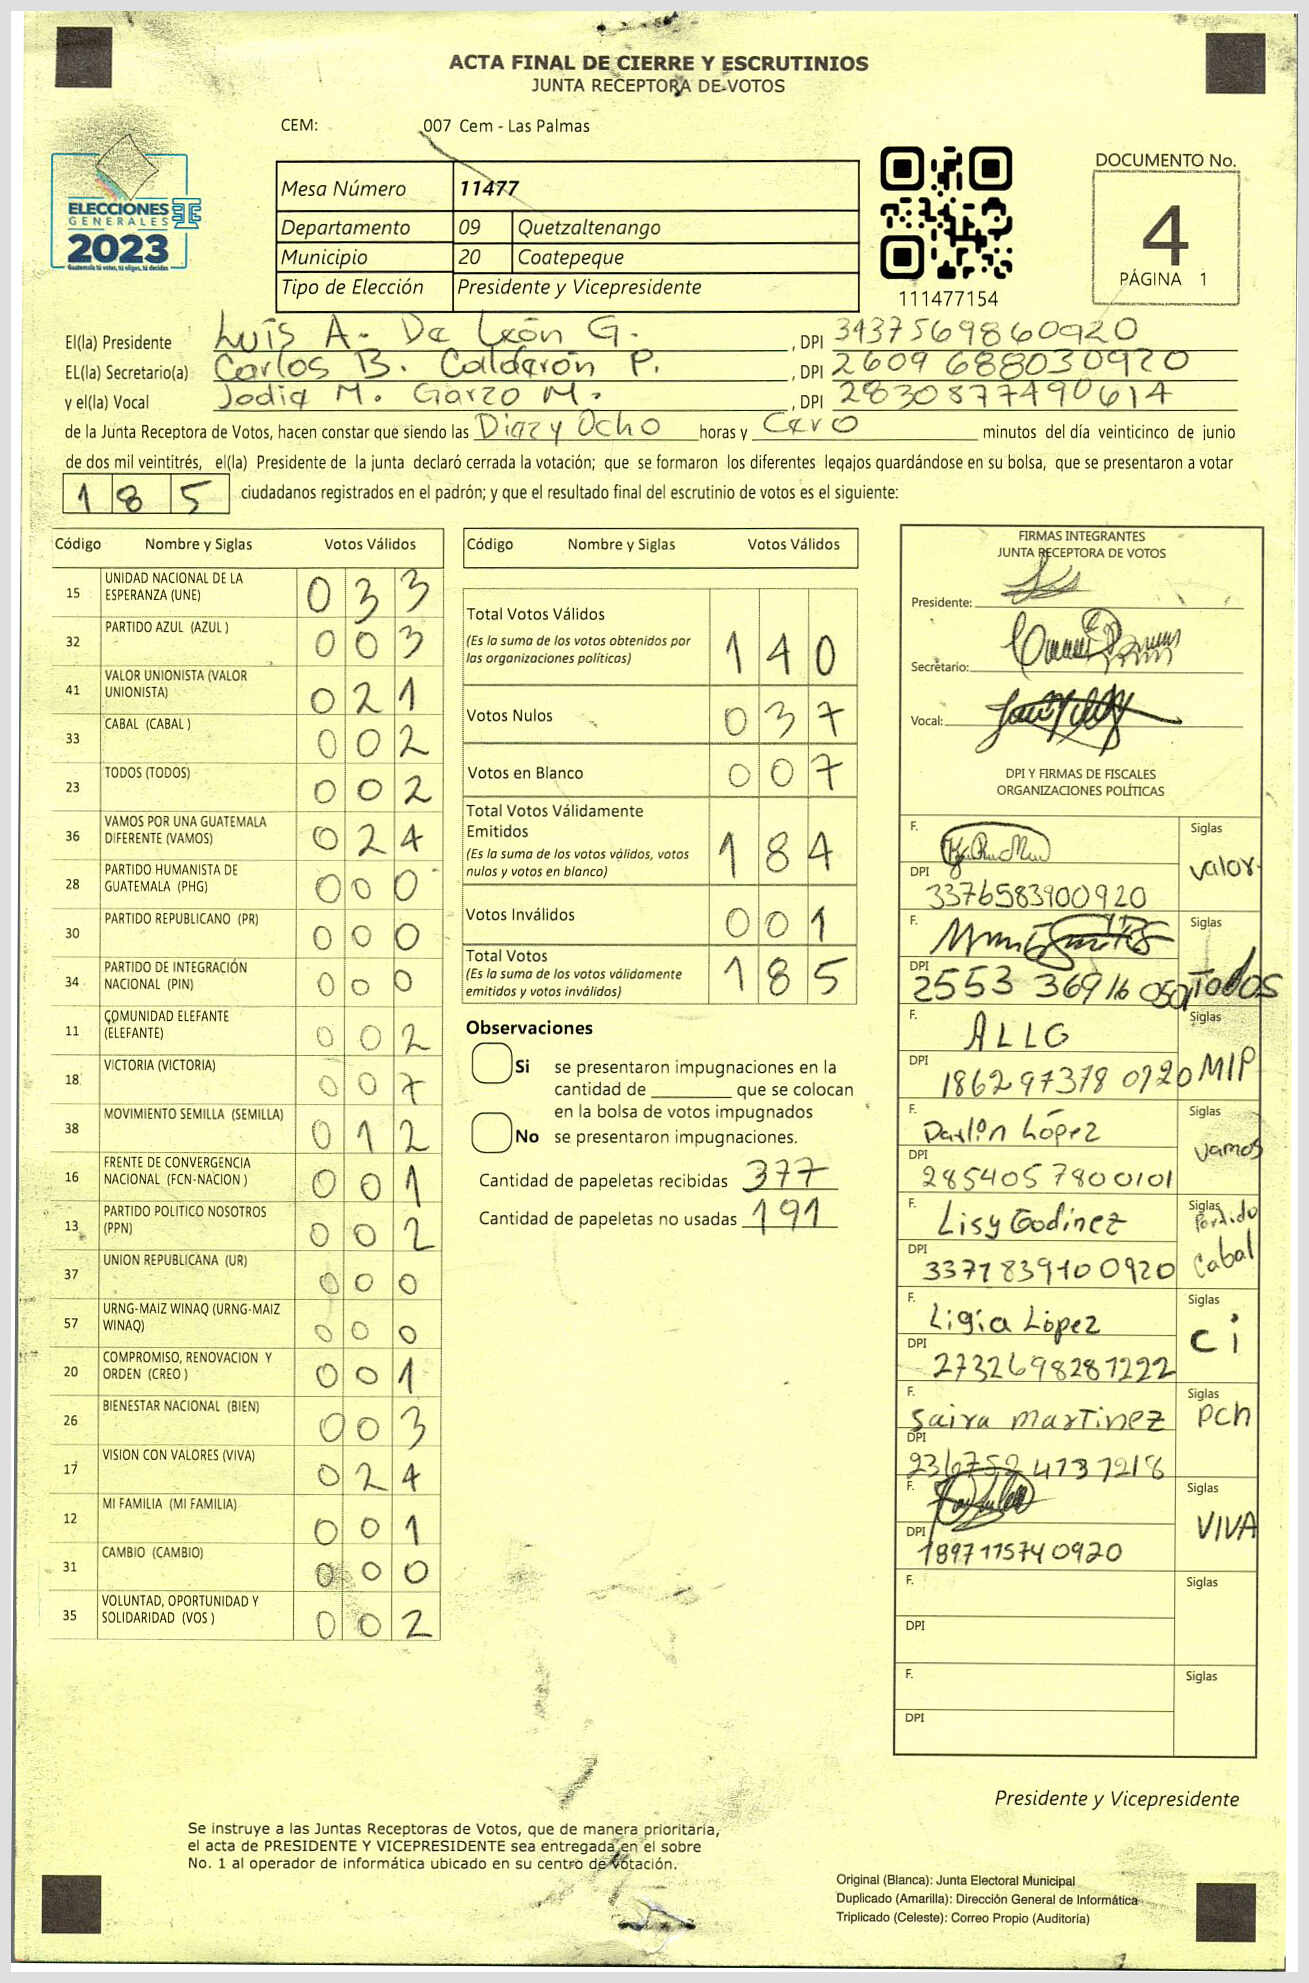 ACTA FINAL DE CIERRE Y ESCRUTINIOS
JUNTA RECEPTORA DE VOTOS
CEM: 007 Cem - Las Palmas
ELECCIONES
GENERALES
2023
Guatemala tú votas, tú eliges, tú decides
Mesa Número 11477
Departamento 09 Quetzaltenango
Municipio 20 Coatepeque
Tipo de Elección Presidente y Vicepresidente
111477154
DOCUMENTO No.
4
PÁGINA 1
El(la) Presidente Luis A. De León G. , DPI 3437569860920
EL(la) Secretario(a) Carlos B. Calderón P. , DPI 2609 688030920
y el(la) Vocal Jodia M. Garzo M. , DPI 2830877490614
de la Junta Receptora de Votos, hacen constar que siendo las Diez y Ocho horas y Cero minutos del día veinticinco de junio
de dos mil veintitrés, el(la) Presidente de la junta declaró cerrada la votación; que se formaron los diferentes legajos guardándose en su bolsa, que se presentaron a votar
185 ciudadanos registrados en el padrón; y que el resultado final del escrutinio de votos es el siguiente:
Código Nombre y Siglas Votos Válidos
15 UNIDAD NACIONAL DE LA ESPERANZA (UNE) 033
32 PARTIDO AZUL (AZUL ) 003
41 VALOR UNIONISTA (VALOR UNIONISTA) 021
33 CABAL (CABAL ) 002
23 TODOS (TODOS) 002
36 VAMOS POR UNA GUATEMALA DIFERENTE (VAMOS) 024
28 PARTIDO HUMANISTA DE GUATEMALA (PHG) 000
30 PARTIDO REPUBLICANO (PR) 000
34 PARTIDO DE INTEGRACIÓN NACIONAL (PIN) 000
11 COMUNIDAD ELEFANTE (ELEFANTE) 002
18 VICTORIA (VICTORIA) 007
38 MOVIMIENTO SEMILLA (SEMILLA) 012
16 FRENTE DE CONVERGENCIA NACIONAL (FCN-NACION ) 001
13 PARTIDO POLITICO NOSOTROS (PPN) 002
37 UNION REPUBLICANA (UR) 000
57 URNG-MAIZ WINAQ (URNG-MAIZ WINAQ) 000
20 COMPROMISO, RENOVACION Y ORDEN (CREO ) 001
26 BIENESTAR NACIONAL (BIEN) 003
17 VISION CON VALORES (VIVA) 024
12 MI FAMILIA (MI FAMILIA) 001
31 CAMBIO (CAMBIO) 000
35 VOLUNTAD, OPORTUNIDAD Y SOLIDARIDAD (VOS ) 002
Código Nombre y Siglas Votos Válidos
Total Votos Válidos 140
(Es la suma de los votos obtenidos por
las organizaciones políticas)
Votos Nulos 037
Votos en Blanco 007
Total Votos Válidamente
Emitidos 184
(Es la suma de los votos válidos, votos
nulos y votos en blanco)
Votos Inválidos 001
Total Votos 185
(Es la suma de los votos válidamente
emitidos y votos inválidos)
Observaciones
Si se presentaron impugnaciones en la
cantidad de ________ que se colocan
en la bolsa de votos impugnados
No se presentaron impugnaciones.
Cantidad de papeletas recibidas 377
Cantidad de papeletas no usadas 191
FIRMAS INTEGRANTES
JUNTA RECEPTORA DE VOTOS
Presidente:
Secretario:
Vocal:
DPI Y FIRMAS DE FISCALES
ORGANIZACIONES POLÍTICAS
F. Siglas valor
DPI 3376583900920
F. Siglas Todos
DPI 2553 36916 0501
F. ALLG Siglas MIP
DPI 186297378 0920
F. Darlin López Siglas vamos
DPI 2854057800101
F. Lisy Godínez Siglas Partido Cabal
DPI 3371839100920
F. Ligia López Siglas Ci
DPI 2732698281222
F. Saira Martinez Siglas PCN
DPI 236752 4131218
F. Siglas VIVA
DPI 1897115740920
F. Siglas
DPI
F. Siglas
DPI
Presidente y Vicepresidente
Se instruye a las Juntas Receptoras de Votos, que de manera prioritaria,
el acta de PRESIDENTE Y VICEPRESIDENTE sea entregada en el sobre
No. 1 al operador de informática ubicado en su centro de votación.
Original (Blanca): Junta Electoral Municipal
Duplicado (Amarilla): Dirección General de Informática
Triplicado (Celeste): Correo Propio (Auditoría)